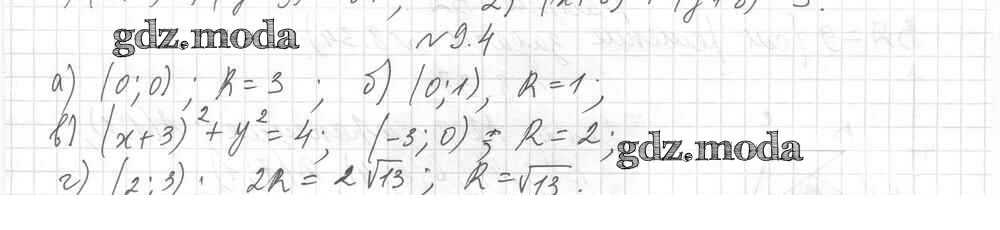 gdz.moda
№9.4
а) (0;0); R=3; б) (0;1), R=1;
в) (x+3)²+y²=4; (-3;0); R=2;
gdz.moda
г) (2;3). 2R=2√13; R=√13.